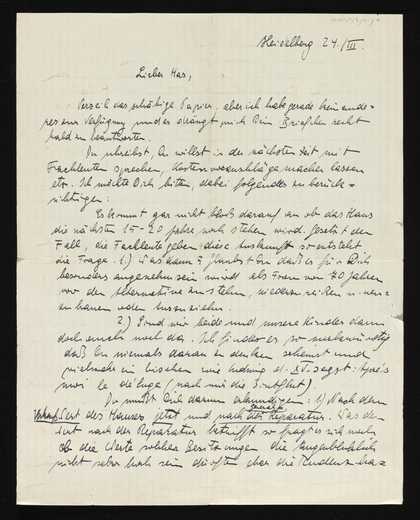 Heidelberg 24/III.
Liebes Has,
Verzeih das schäbige Papier, aber ich hab gerade kein ande=
res zur Verfügung und es drängt mich Dein Brieflein recht
bald zu beantworten.
Du schreibst, Du willst in der nächsten Zeit mit
Fachleuten sprechen, Kostenvoranschläge machen lassen
etc. Ich möchte Dich bitten, dabei folgendes zu berück=
sichtigen:
Es kommt gar nicht bloß darauf an ob das Haus
die nächsten 15-20 Jahre noch stehen wird. Gesetzt den
Fall, die Fachleute geben diese Auskunft so entsteht
die Frage. 1.) Was dann? Glaubst Du daß es für Dich
besonders angenehm sein wird als Frau von 70 Jahren
vor der Alternative zu stehen, niederzureißen u. neu=
zubauen oder auszuziehen.
2.) Sind wir beide und unsere Kinder dann
doch auch noch da. Ich finde es so merkwürdig
daß Du niemals daran zu denken scheinst und
vielmehr ein bischen wie Ludwig d. XV. sagst: Après
moi le déluge (nach mir die Sintflut).
Du mußt Dich darum erkundigen: 1) Nach dem
Verkaufswert des Hauses jetzt und nach der Reparatur. Was de
Wert nach der Reparatur betrifft so fragt es sich noch
ob die Werte solcher Besitzungen die augenblicklich
nicht sehr hoch sein dürften über die